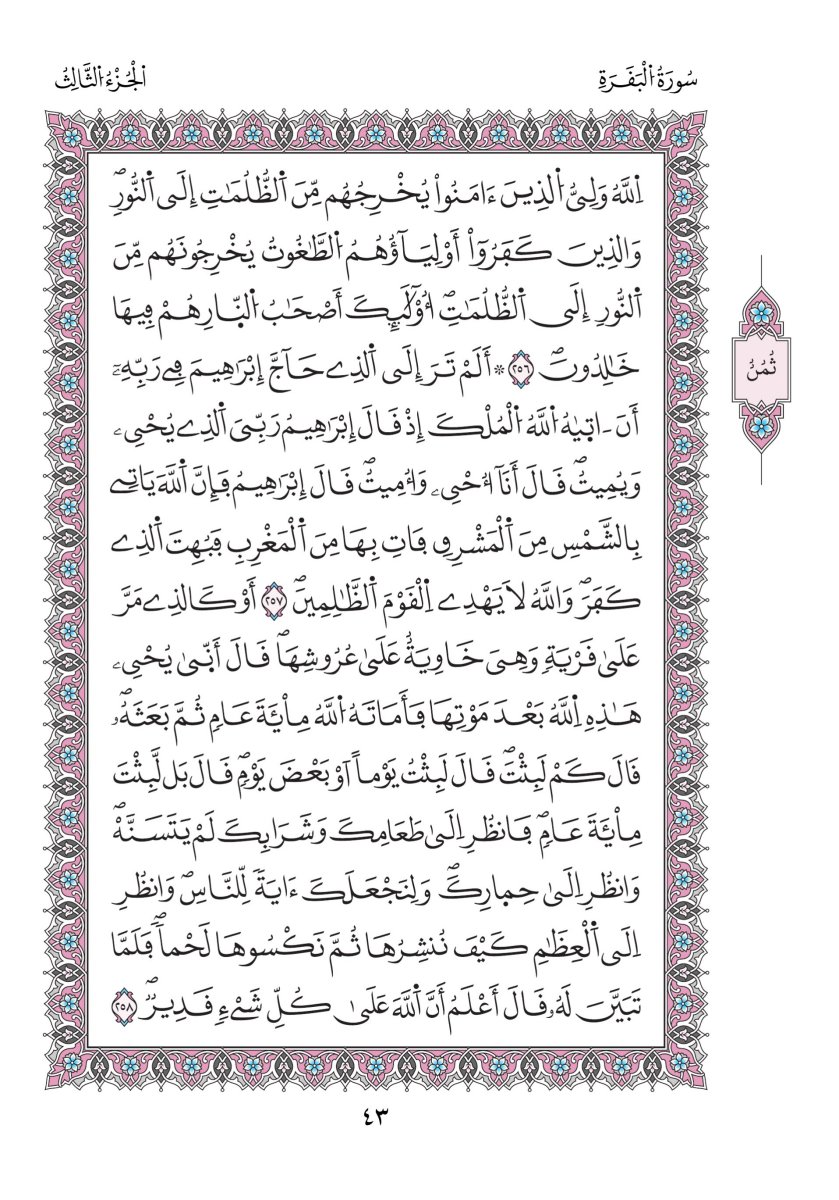 سُورَةُ اُ۬لْبَقَرَةِ
اَ۬لْجُزْءُ اُ۬لثَّالِثُ
اِ۬للَّهُ وَلِيُّ اُ۬لذِينَ ءَامَنُواْ يُخْرِجُهُم مِّنَ اَ۬لظُّلُمَٰتِ إِلَى اَ۬لنُّورِۖ
وَالذِينَ كَفَرُوٓاْ أَوْلِيَآؤُهُمُ اُ۬لطَّٰغُوتُ يُخْرِجُونَهُم مِّنَ
اَ۬لنُّورِ إِلَى اَ۬لظُّلُمَٰتِۖ أُوْلَٰٓئِكَ أَصْحَٰبُ اُ۬لنّ۪ارِ هُمْ فِيهَا
خَٰلِدُونَۖ ٢٥٦ ۞ أَلَمْ تَرَ إِلَى اَ۬لذِے حَآجَّ إِبْرَٰهِيمَ فِے رَبِّهِۦٓ
أَنَ اٰت۪يٰهُ اُ۬للَّهُ اُ۬لْمُلْكَ إِذْ قَالَ إِبْرَٰهِيمُ رَبِّيَ اَ۬لذِے يُحْيِۦ
وَيُمِيتُۖ قَالَ أَنَآ أُحْيِۦ وَأُمِيتُۖ قَالَ إِبْرَٰهِيمُ فَإِنَّ اَ۬للَّهَ يَاتِے
بِالشَّمْسِ مِنَ اَ۬لْمَشْرِقِ فَاتِ بِهَا مِنَ اَ۬لْمَغْرِبِ فَبُهِتَ اَ۬لذِے
كَفَرَۖ وَاللَّهُ لَا يَهْدِے اِ۬لْقَوْمَ اَ۬لظَّٰلِمِينَۖ ٢٥٧ أَوْ كَالذِے مَرَّ
عَلَىٰ قَرْيَةٖ وَهِيَ خَاوِيَةٌ عَلَىٰ عُرُوشِهَاۖ قَالَ أَنّ۪يٰ يُحْيِۦ
هَٰذِهِ اِ۬للَّهُ بَعْدَ مَوْتِهَا فَأَمَاتَهُ اُ۬للَّهُ مِاْئَةَ عَامٖ ثُمَّ بَعَثَهُۥۖ
قَالَ كَمْ لَبِثْتَۖ قَالَ لَبِثْتُ يَوْماً اَوْ بَعْضَ يَوْمٖۖ قَالَ بَل لَّبِثْتَ
مِاْئَةَ عَامٖۖ فَانظُرِ اِلَىٰ طَعَامِكَ وَشَرَابِكَ لَمْ يَتَسَنَّهْۖ
وَانظُرِ اِلَىٰ حِم۪ارِكَۖ وَلِنَجْعَلَكَ ءَايَةٗ لِّلنَّاسِۖ وَانظُرِ
اِلَى اَ۬لْعِظَٰمِ كَيْفَ نُنشِرُهَا ثُمَّ نَكْسُوهَا لَحْماٗۖ فَلَمَّا
تَبَيَّنَ لَهُۥ قَالَ أَعْلَمُ أَنَّ اَ۬للَّهَ عَلَىٰ كُلِّ شَےْءٖ قَدِيرٞۖ ٢٥٨
ثُمُنُ
٤٣